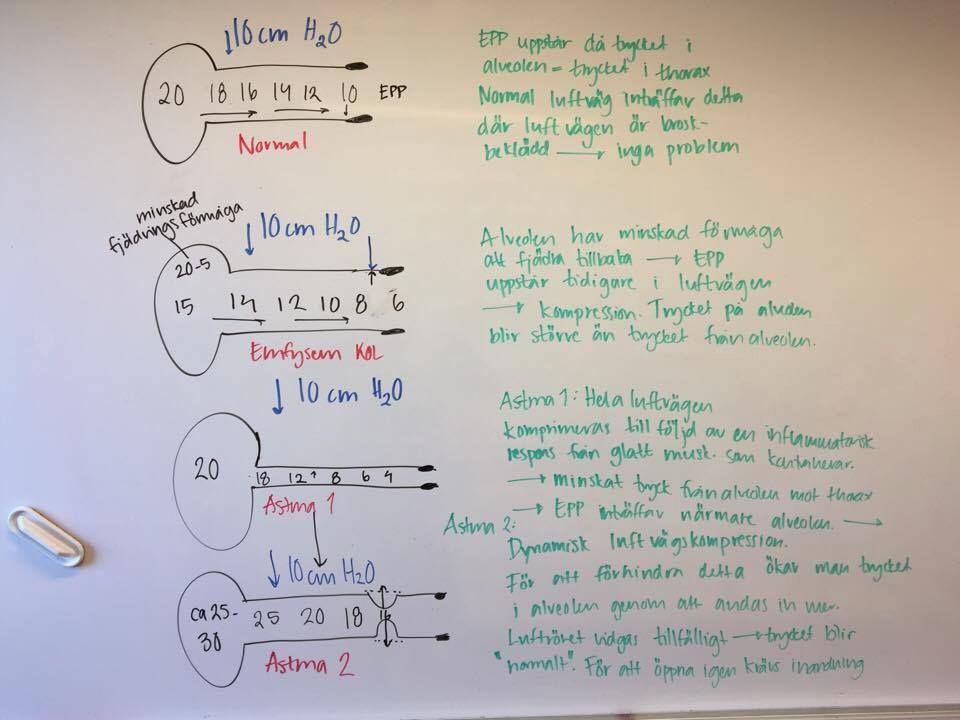 10 cm H₂O
20 18 16 14 12 10 EPP
Normal
EPP uppstår då trycket i
alveolen = trycket i thorax
Normal luftväg inträffar detta
där luftvägen är brosk-
beklädd → inga problem
minskad
fjädringsförmåga
10 cm H₂O
20-5
15 14 12 10 8 6
Emfysem KOL
Alveolen har minskad förmåga
att fjädra tillbaka → EPP
uppstår tidigare i luftvägen
→ kompression. Trycket på alveolen
blir större än trycket från alveolen.
10 cm H₂O
20
18 12 8 6 4
Astma 1
Astma 1: Hela luftvägen
komprimeras till följd av en inflammatorisk
respons från glatt musk. som
→ minskat tryck från alveolen mot thorax
→ EPP inträffar närmare alveolen. →
Astma 2:
Dynamisk luftvägskompression.
10 cm H₂O
ca 25-
30
25 20 18 16
Astma 2
För att förhindra detta ökar man trycket
i alveolen genom att andas in mer.
Luftröret vidgas tillfälligt → trycket blir
"normalt". För att öppna igen krävs inandning